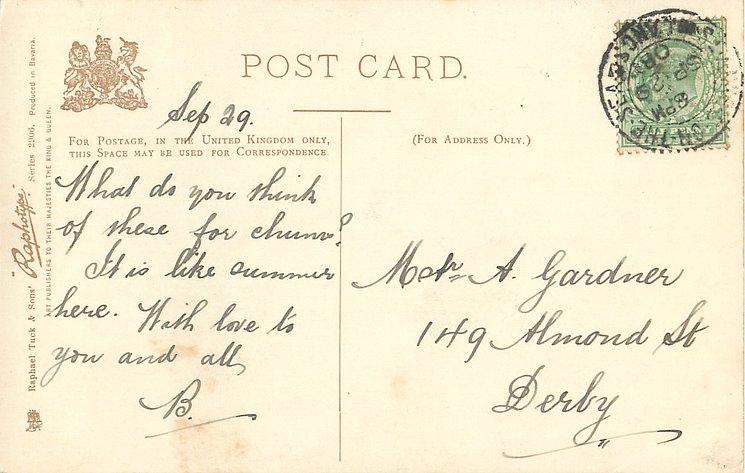 POST CARD.
Sep 29.
FOR POSTAGE, IN THE UNITED KINGDOM ONLY,
THIS SPACE MAY BE USED FOR CORRESPONDENCE
(FOR ADDRESS ONLY.)
What do you think
of these for chums?
It is like summer
here. With love to
you and all,
B.
A. Gardner
149 Almond St
Derby
Raphael Tuck & Sons' "Raphotype" Series 2006. Produced in Bavaria.
ART PUBLISHERS TO THEIR MAJESTIES THE KING & QUEEN.
8 PM
SP 29